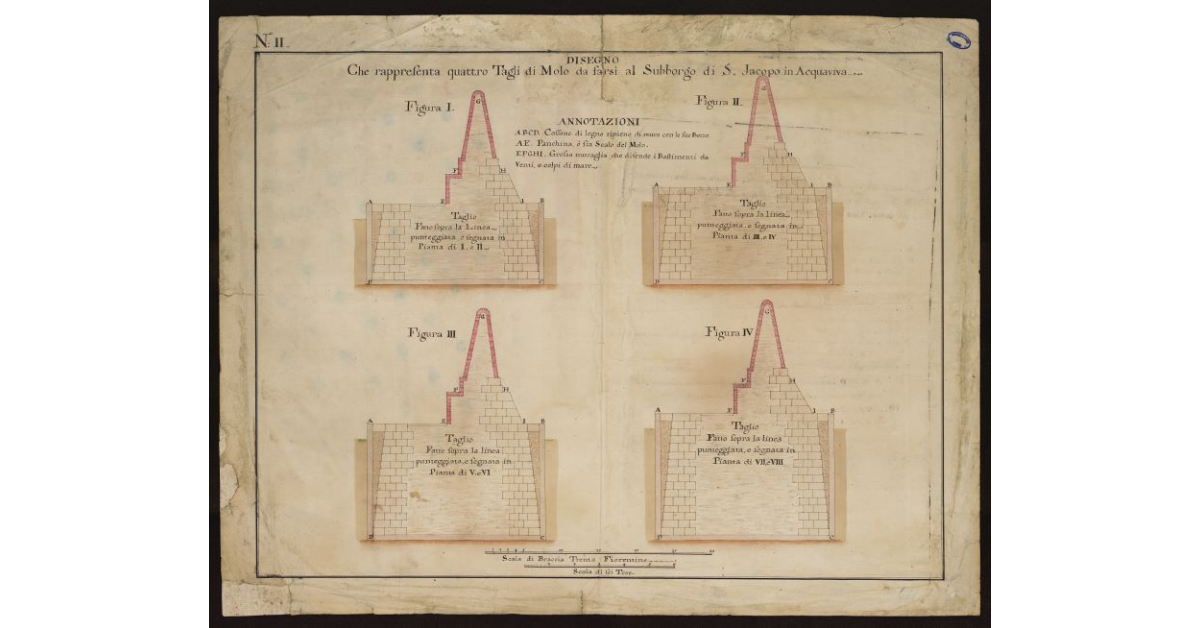 N.º II.
DISEGNO
Che rappresenta quattro Tagli di Molo da farsi al Subborgo di S. Jacopo in Acquaviva
Figura I.
G
F
H
A
E
I
B
D
C
Taglio
Fatto sopra la Linea
punteggiata, e segnata in
Pianta di I. e II
ANNOTAZIONI
ABCD. Cassone di legno ripieno di muro con le sue
AE. Panchina, o sia Scalo del Molo.
EFGHI. Grossa muraglia che difende i Bastimenti da
Venti, e colpi di mare
Figura II.
G
F
H
A
E
I
B
D
C
Taglio
Fatto sopra la linea
punteggiata, e segnata in
Pianta di III. e IV
Figura III
G
F
H
A
E
I
B
D
C
Taglio
Fatto sopra la linea
punteggiata, e segnata in
Pianta di V. e VI
Figura IV
G
F
H
A
E
I
B
D
C
Taglio
Fatto sopra la linea
punteggiata, e segnata in
Pianta di VII. e VIII
Scala di Braccia Trenta Fiorentine
Scala di Tese